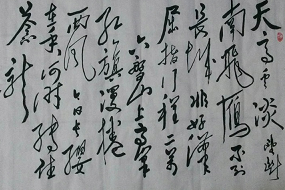 天高云淡望断
南飛雁不到
長城非好漢
屈指行程二万
六盘山上高峰
红旗漫捲
西風今日长缨
在手何时缚住
蒼龍